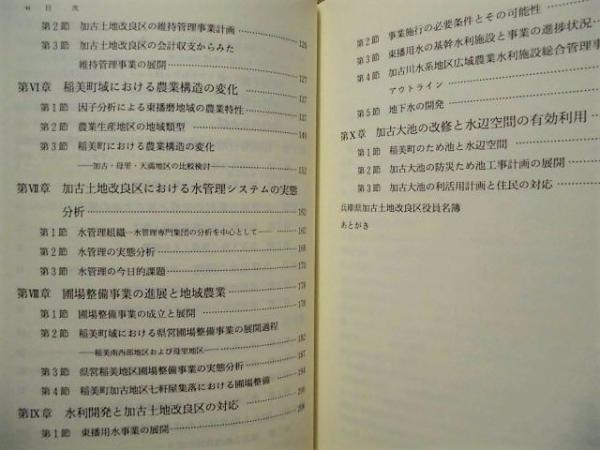 目 次
第2節 加古土地改良区の維持管理事業計画
第3節 加古土地改良区の会計収支からみた
維持管理事業の展開
第Ⅵ章 稲美町域における農業構造の変化
第1節 因子分析による東播磨地域の農業特性
第2節 農業生産地区の地域類型
第3節 稲美町における農業構造の変化
——加古・母里・天満地区の比較検討——
第Ⅶ章 加古土地改良区における水管理システムの実態
分析
第1節 水管理組織—水管理専門集団の分析を中心として—
第2節 水管理の実態分析
第3節 水管理の今日的課題
第Ⅷ章 圃場整備事業の進展と地域農業
第1節 圃場整備事業の成立と展開
第2節 稲美町域における県営圃場整備事業の展開過程
——稲美南西部地区および母里地区——
第3節 県営稲美地区圃場整備事業の実態分析
第4節 稲美町加古地区七軒屋集落における圃場整備
第Ⅸ章 水利開発と加古土地改良区の対応
第1節 東播用水事業の展開
第2節 事業施行の必要条件とその可能性
第3節 東播用水の基幹水利施設と事業の進捗状況
第4節 加古川水系地区広域農業水利施設総合管理事
アウトライン
第5節 地下水の開発
第Ⅹ章 加古大池の改修と水辺空間の有効利用
第1節 稲美町のため池と水辺空間
第2節 加古大池の防災ため池工事計画の展開
第3節 加古大池の利活用計画と住民の対応
兵庫県加古土地改良区役員名簿
あとがき